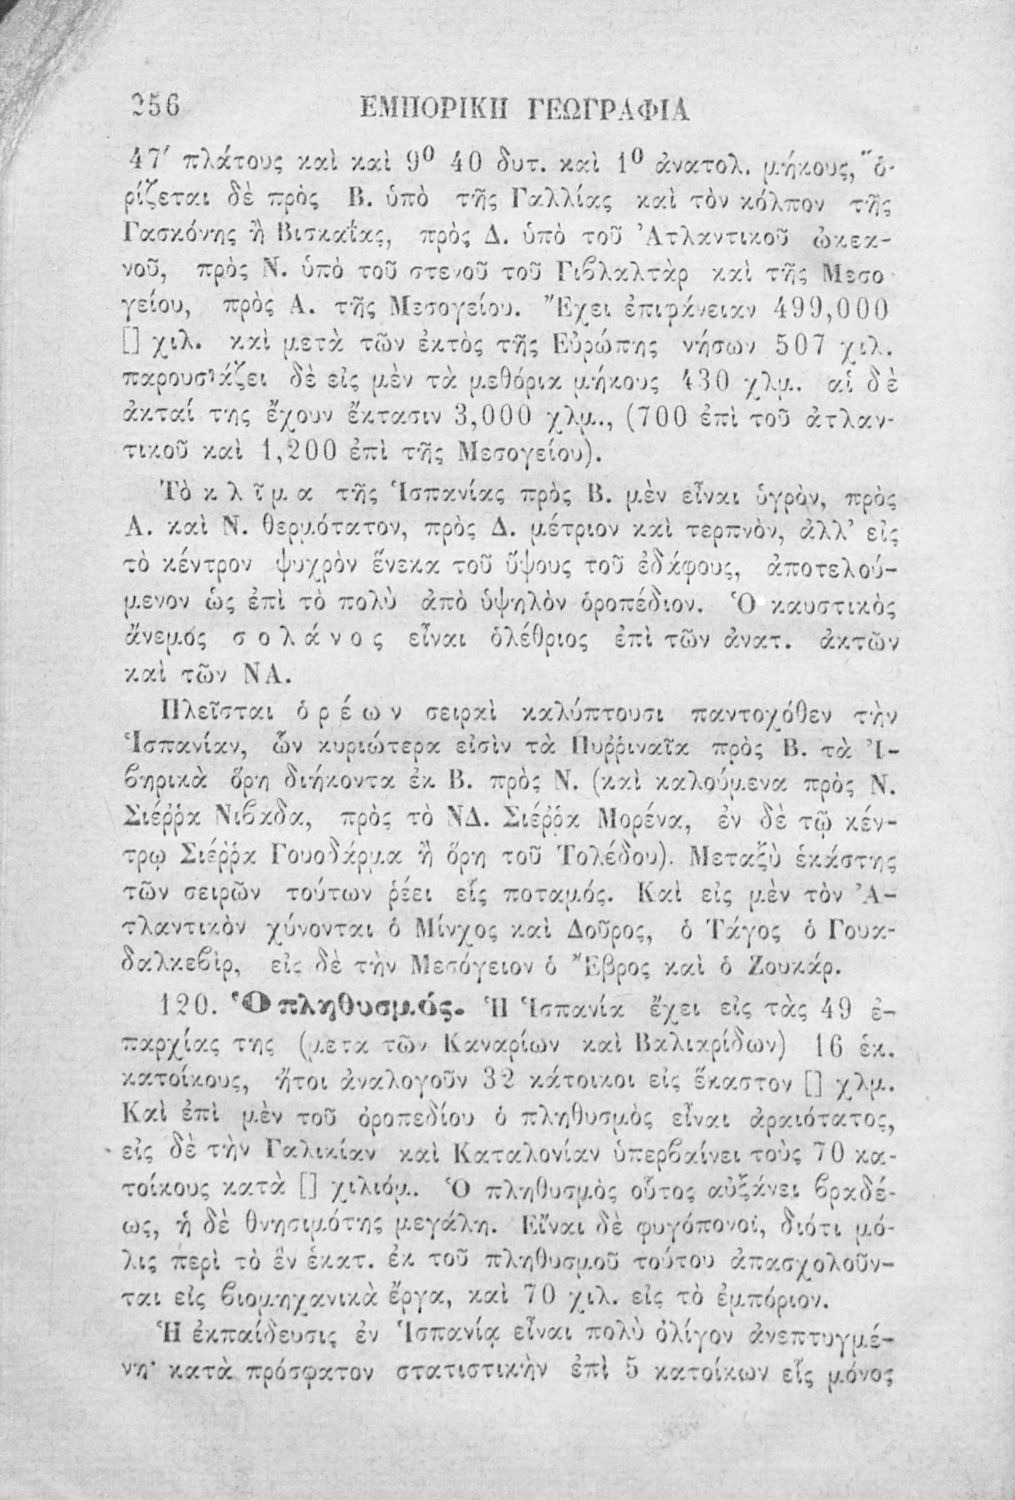 256 ΕΜΠΟΡΙΚΗ ΓΕΩΓΡΑΦΙΑ
47′ πλάτους καὶ καὶ 9⁰ 40 δυτ. καὶ 1⁰ ἀνατολ. μήκους, ὁ-
ρίζεται δὲ πρὸς Β. ὑπὸ τῆς Γαλλίας καὶ τὸν κόλπον τῆς
Γασκόνης ἢ Βισκαΐας, πρὸς Δ. ὑπὸ τοῦ Ἀτλαντικοῦ ὠκεα-
νοῦ, πρὸς Ν. ὑπὸ τοῦ στενοῦ τοῦ Γιβλαλτὰρ καὶ τῆς Μεσο
γείου, πρὸς Α. τῆς Μεσογείου. Ἔχει ἐπιφάνειαν 499,000
[] χιλ. καὶ μετὰ τῶν ἐκτὸς τῆς Εὐρώπης νήσων 507 χιλ.
παρουσιάζει δὲ εἰς μὲν τὰ μεθόρια μήκους 430 χλμ. αἱ δὲ
ἀκταί της ἔχουν ἔκτασιν 3,000 χλμ., (700 ἐπὶ τοῦ ἀτλαν-
τικοῦ καὶ 1,200 ἐπὶ τῆς Μεσογείου).
Τὸ κλῖμα τῆς Ἱσπανίας πρὸς Β. μὲν εἶναι ὑγρὸν, πρὸς
Α. καὶ Ν. θερμότατον, πρὸς Δ. μέτριον καὶ τερπνὸν, ἀλλ’ εἰς
τὸ κέντρον ψυχρὸν ἕνεκα τοῦ ὕψους τοῦ ἐδάφους, ἀποτελού-
μενον ὡς ἐπὶ τὸ πολὺ ἀπὸ ὑψηλὸν ὀροπέδιον. Ὁ καυστικὸς
ἄνεμος σολάνος εἶναι ὀλέθριος ἐπὶ τῶν ἀνατ. ἀκτῶν
καὶ τῶν ΝΑ.
Πλεῖσται ὀρέων σειραὶ καλύπτουσι παντοχόθεν τὴν
Ἱσπανίαν, ὧν κυριώτερα εἰσὶν τὰ Πυῤῥιναῖα πρὸς Β. τὰ Ἰ-
βηρικὰ ὄρη διήκοντα ἐκ Β. πρὸς Ν. (καὶ καλούμενα πρὸς Ν.
Σιέῤῥα Νιβάδα, πρὸς τὸ ΝΔ. Σιέῤῥα Μορένα, ἐν δὲ τῷ κέν-
τρῳ Σιέῤῥα Γουοδάρμα ἢ ὄρη τοῦ Τολέδου). Μεταξὺ ἑκάστης
τῶν σειρῶν τούτων ῥέει εἷς ποταμός. Καὶ εἰς μὲν τὸν Ἀ-
τλαντικὸν χύνονται ὁ Μίνχος καὶ Δοῦρος, ὁ Τάγος ὁ Γουα-
δαλκεβὶρ, εἰς δὲ τὴν Μεσόγειον ὁ Ἔβρος καὶ ὁ Ζουκάρ.
120. Ὁ πληθυσμός. Ἡ Ἱσπανία ἔχει εἰς τὰς 49 ἐ-
παρχίας της (μετα τῶν Καναρίων καὶ Βαλιαρίδων) 16 ἑκ.
κατοίκους, ἤτοι ἀναλογοῦν 32 κάτοικοι εἰς ἕκαστον [] χλμ.
Καὶ ἐπὶ μὲν τοῦ ὀροπεδίου ὁ πληθυσμὸς εἶναι ἀραιότατος,
εἰς δὲ τὴν Γαλικίαν καὶ Καταλονίαν ὑπερβαίνει τοὺς 70 κα-
τοίκους κατὰ [] χιλιόμ. Ὁ πληθυσμὸς οὗτος αὐξάνει βραδέ-
ως, ἡ δὲ θνησιμότης μεγάλη. Εἶναι δὲ φυγόπονοι, διότι μό-
λις περὶ τὸ ἓν ἑκατ. ἐκ τοῦ πληθυσμοῦ τούτου ἀπασχολοῦν-
ται εἰς βιομηχανικὰ ἔργα, καὶ 70 χιλ. εἰς τὸ ἐμπόριον.
Ἡ ἐκπαίδευσις ἐν Ἱσπανίᾳ εἶναι πολὺ ὀλίγον ἀνεπτυγμέ-
νη· κατὰ πρόσφατον στατιστικὴν ἐπὶ 5 κατοίκων εἷς μόνος